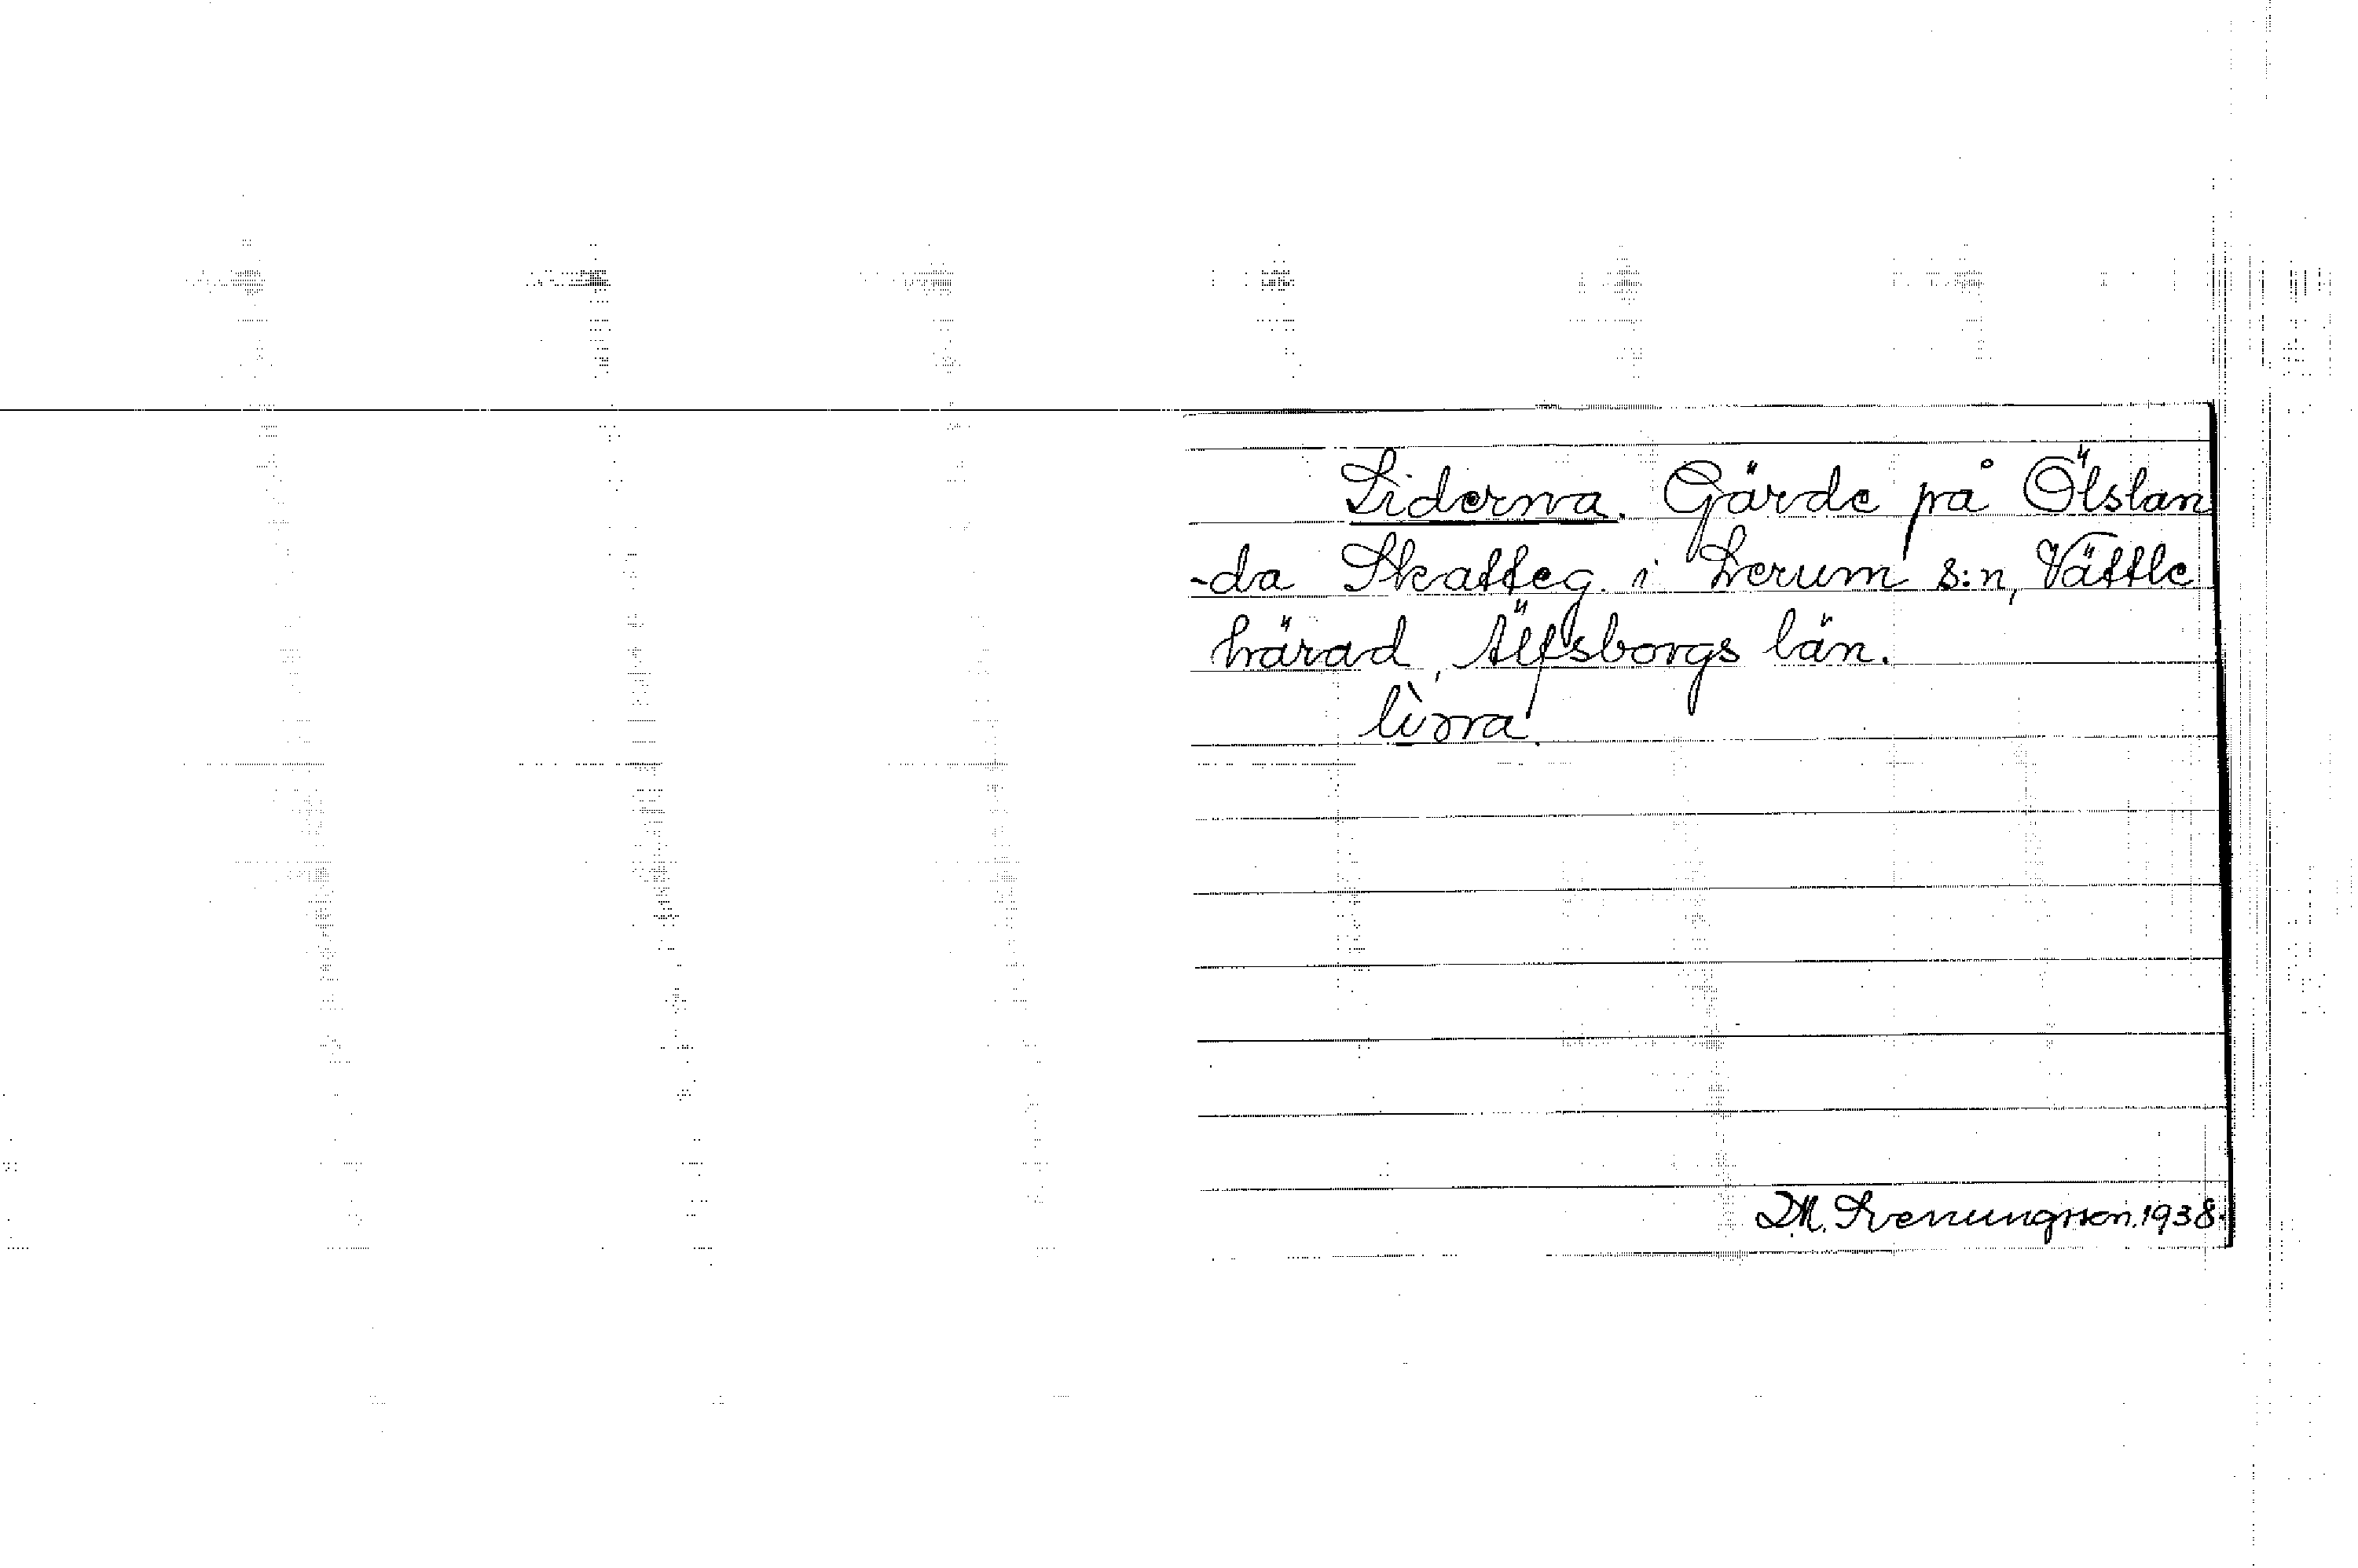 Liderna. Gärde på Ölslan
-da Skatteg. i Lerum s:n, Vättle
härad, Älfsborgs län.
D.M. Svenungsson. 1938.